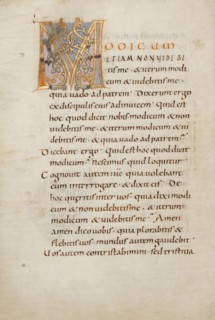 MODICUM
ET IAM NON VIDEBI
tis me · & iterum modi
cum & uidebitis me ·
quia uado ad patrem · Dixerunt ergo
ex discipulis eius adinuicem · Quid est
hoc quod dicit nobis modicum & non
uidebitis me · & iterum modicum & ui
debitis me · & quia uado ad patrem ·
Dicebant ergo · Quid est hoc quod dicit
modicum · nescimus quid loquitur ·
Cognouit autem ihs quia uolebant
eum interrogare · & dixit eis · De
hoc queritis inter uos · quia dixi modi
cum & non uidebitis me · & iterum
modicum & uidebitis me · Amen
amen dico uobis · quia plorabitis &
flebitis uos · mundus autem gaudebit
Uos autem contristabimini · sed tristitia